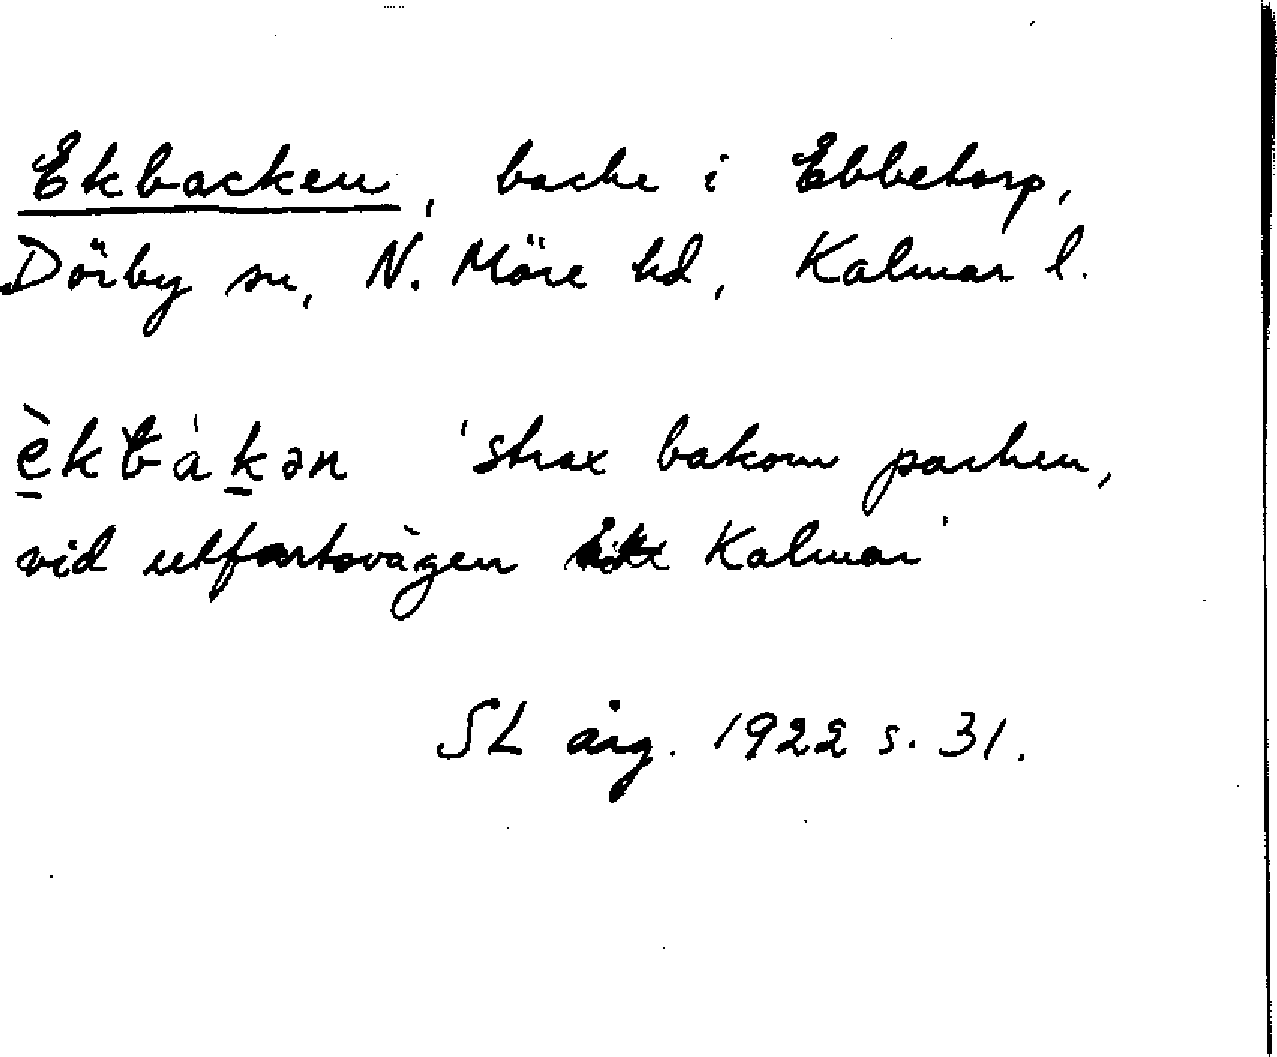 Ekbacken, backe i Ebbetorp,
Dörby sn, N. Möre hd, Kalmar l.
èkbákən 'strax bakom parken,
vid utfartsvägen åt Kalmar'
SL årg. 1922 s. 31.